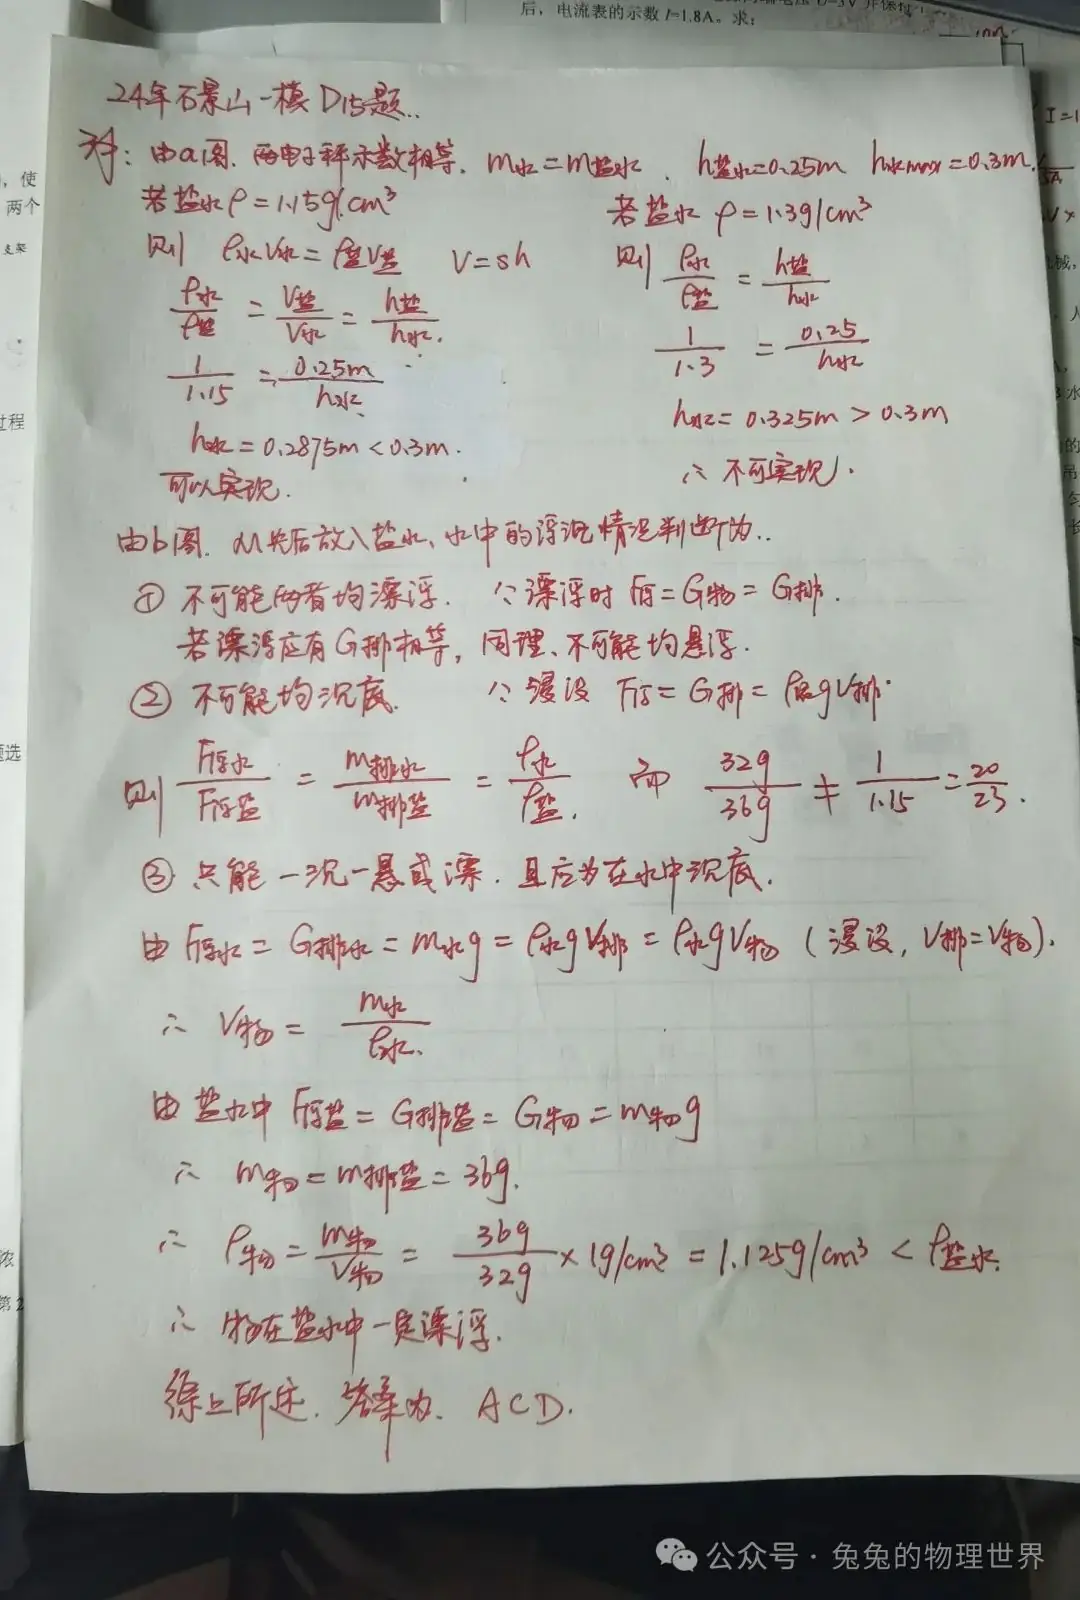 后，电流表的示数I=1.8A。求：
24年石景山一模D15题..
解：由a图.两电子秤示数相等.m水=m盐水.h盐水=0.25m h水max=0.3m.
若盐水ρ=1.15g/cm³ 若盐水ρ=1.3g/cm³
则 ρ水V水=ρ盐V盐 V=sh 则 ρ水/ρ盐=h盐/h水
ρ水/ρ盐=V盐/V水=h盐/h水.
1/1.15=0.25m/h水. 1/1.3=0.25/h水
h水=0.2875m<0.3m. h水=0.325m>0.3m
可以实现. ∴不可实现.
由b图.从先后放入盐水、水中的浮沉情况判断为..
① 不可能两者均漂浮. ∵漂浮时F浮=G物=G排.
若漂浮应有G排相等，同理、不可能均悬浮.
② 不可能均沉底. ∵浸没 F浮=G排=ρ液gV排.
则 F浮水/F浮盐=m排水/m排盐=ρ水/ρ盐. 而 32g/36g≠1/1.15=20/23.
③ 只能一沉一悬或漂.且应为在水中沉底.
由F浮水=G排水=m水g=ρ水gV排=ρ水gV物（浸没，V排=V物).
∴ V物=m水/ρ水.
由盐水中F浮盐=G排盐=G物=m物g
∴ m物=m排盐=36g.
∴ ρ物=m物/V物=36g/32g×1g/cm³=1.125g/cm³<ρ盐水.
∴ 物在盐水中一定漂浮.
综上所述.答案为. ACD.
公众号·兔兔的物理世界